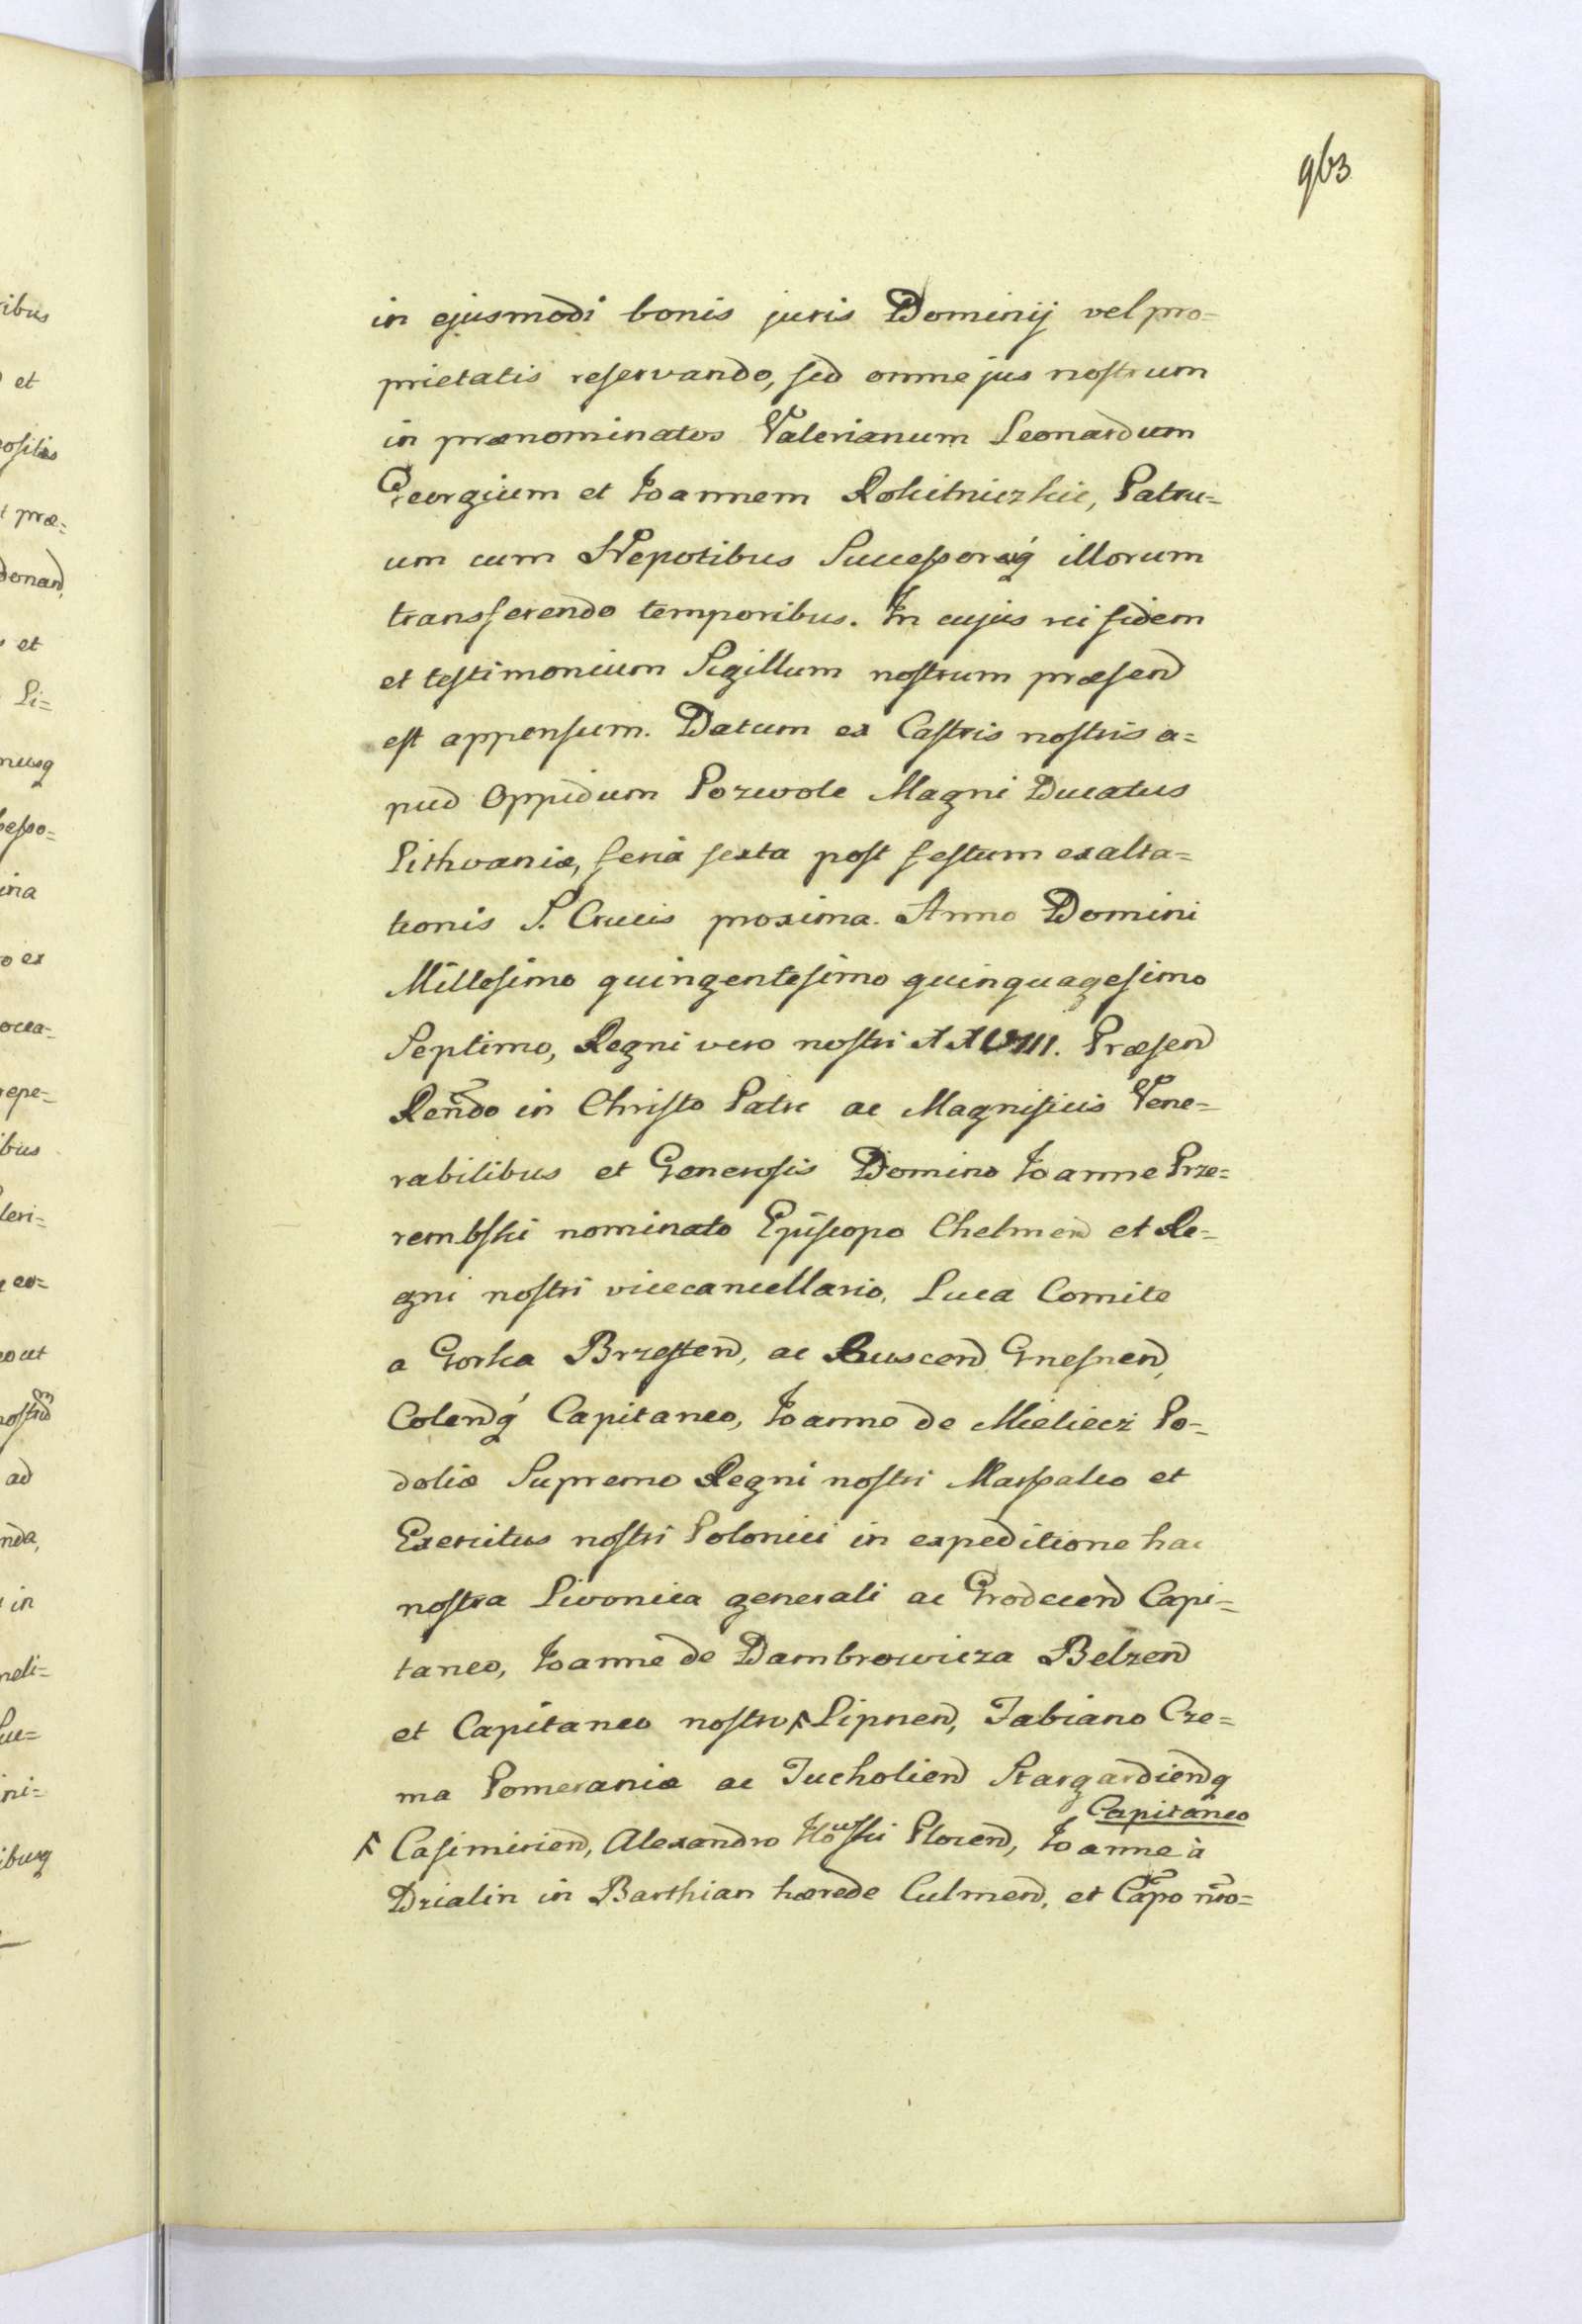 963
ribus
et
in ejusmodi bonis juris Dominij vel pro=
prietatis reservando, sed omne jus nostrum
in prænominatos Valerianum Leonardum
Georgium et Joannem Rokitniczkie, Patru=
um cum Nepotibus Successorq́ illorum
transferendo temporibus. In cujus rei fidem
et testimonium Sigillum nostrum præsend
est appensum. Datum ex Castris nostris a=
pud Oppidum Pozwole Magni Ducatus
Lithvaniæ, feria sexta post festum exalta=
tionis S. Crucis proxima. Anno Domini
Millesimo quingentesimo quinquagesimo
Septimo, Regni vero nostri XXVIII. Præsend
Reñdo in Christo Patre ac Magnificis Vene=
rabilibus et Generosis Domino Joanne Prze=
rembski nominato Episcopo Chelmend et Re=
gni nostri vicecancellario, Luca Comite
a Gorka Brzestend, ac Buscend Gnesnend,
Colendq́ Capitaneo, Joanne de Mieliecz Po=
doliæ Supremo Regni nostri Marsalco et
Exercitus nostri Polonici in expeditione hac
nostra Livonica generali ac Grodecend Capi=
taneo, Joanne de Dambrowicza Belzend
et Capitaneo nostro, Lipnend, Fabiano Cze=
ma Pomeraniæ ac Tucholiend Stargardiendq
Capitaneo
Casimiriend, Alexandro Howski Plocend, Joanne à
Dzialin in Barthian hærede Culmend, et Cap̃o nr̃o=